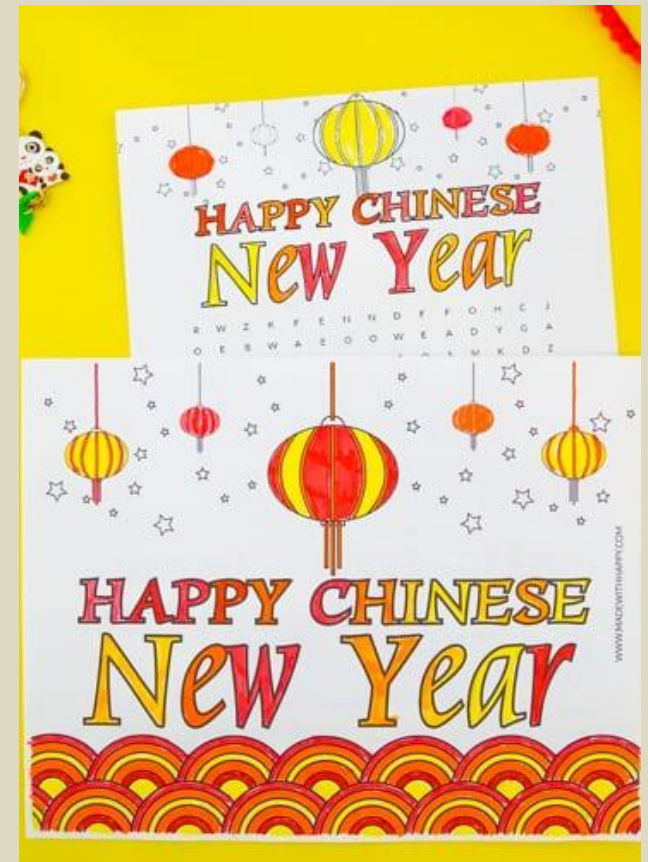 HAPPY CHINESE
New Year
R W Z K F E N N D F F O H C J
O E S W A E O O W E A D Y G A
M K D Z
HAPPY CHINESE
New Year
WWW.MADEWITHHAPPY.COM